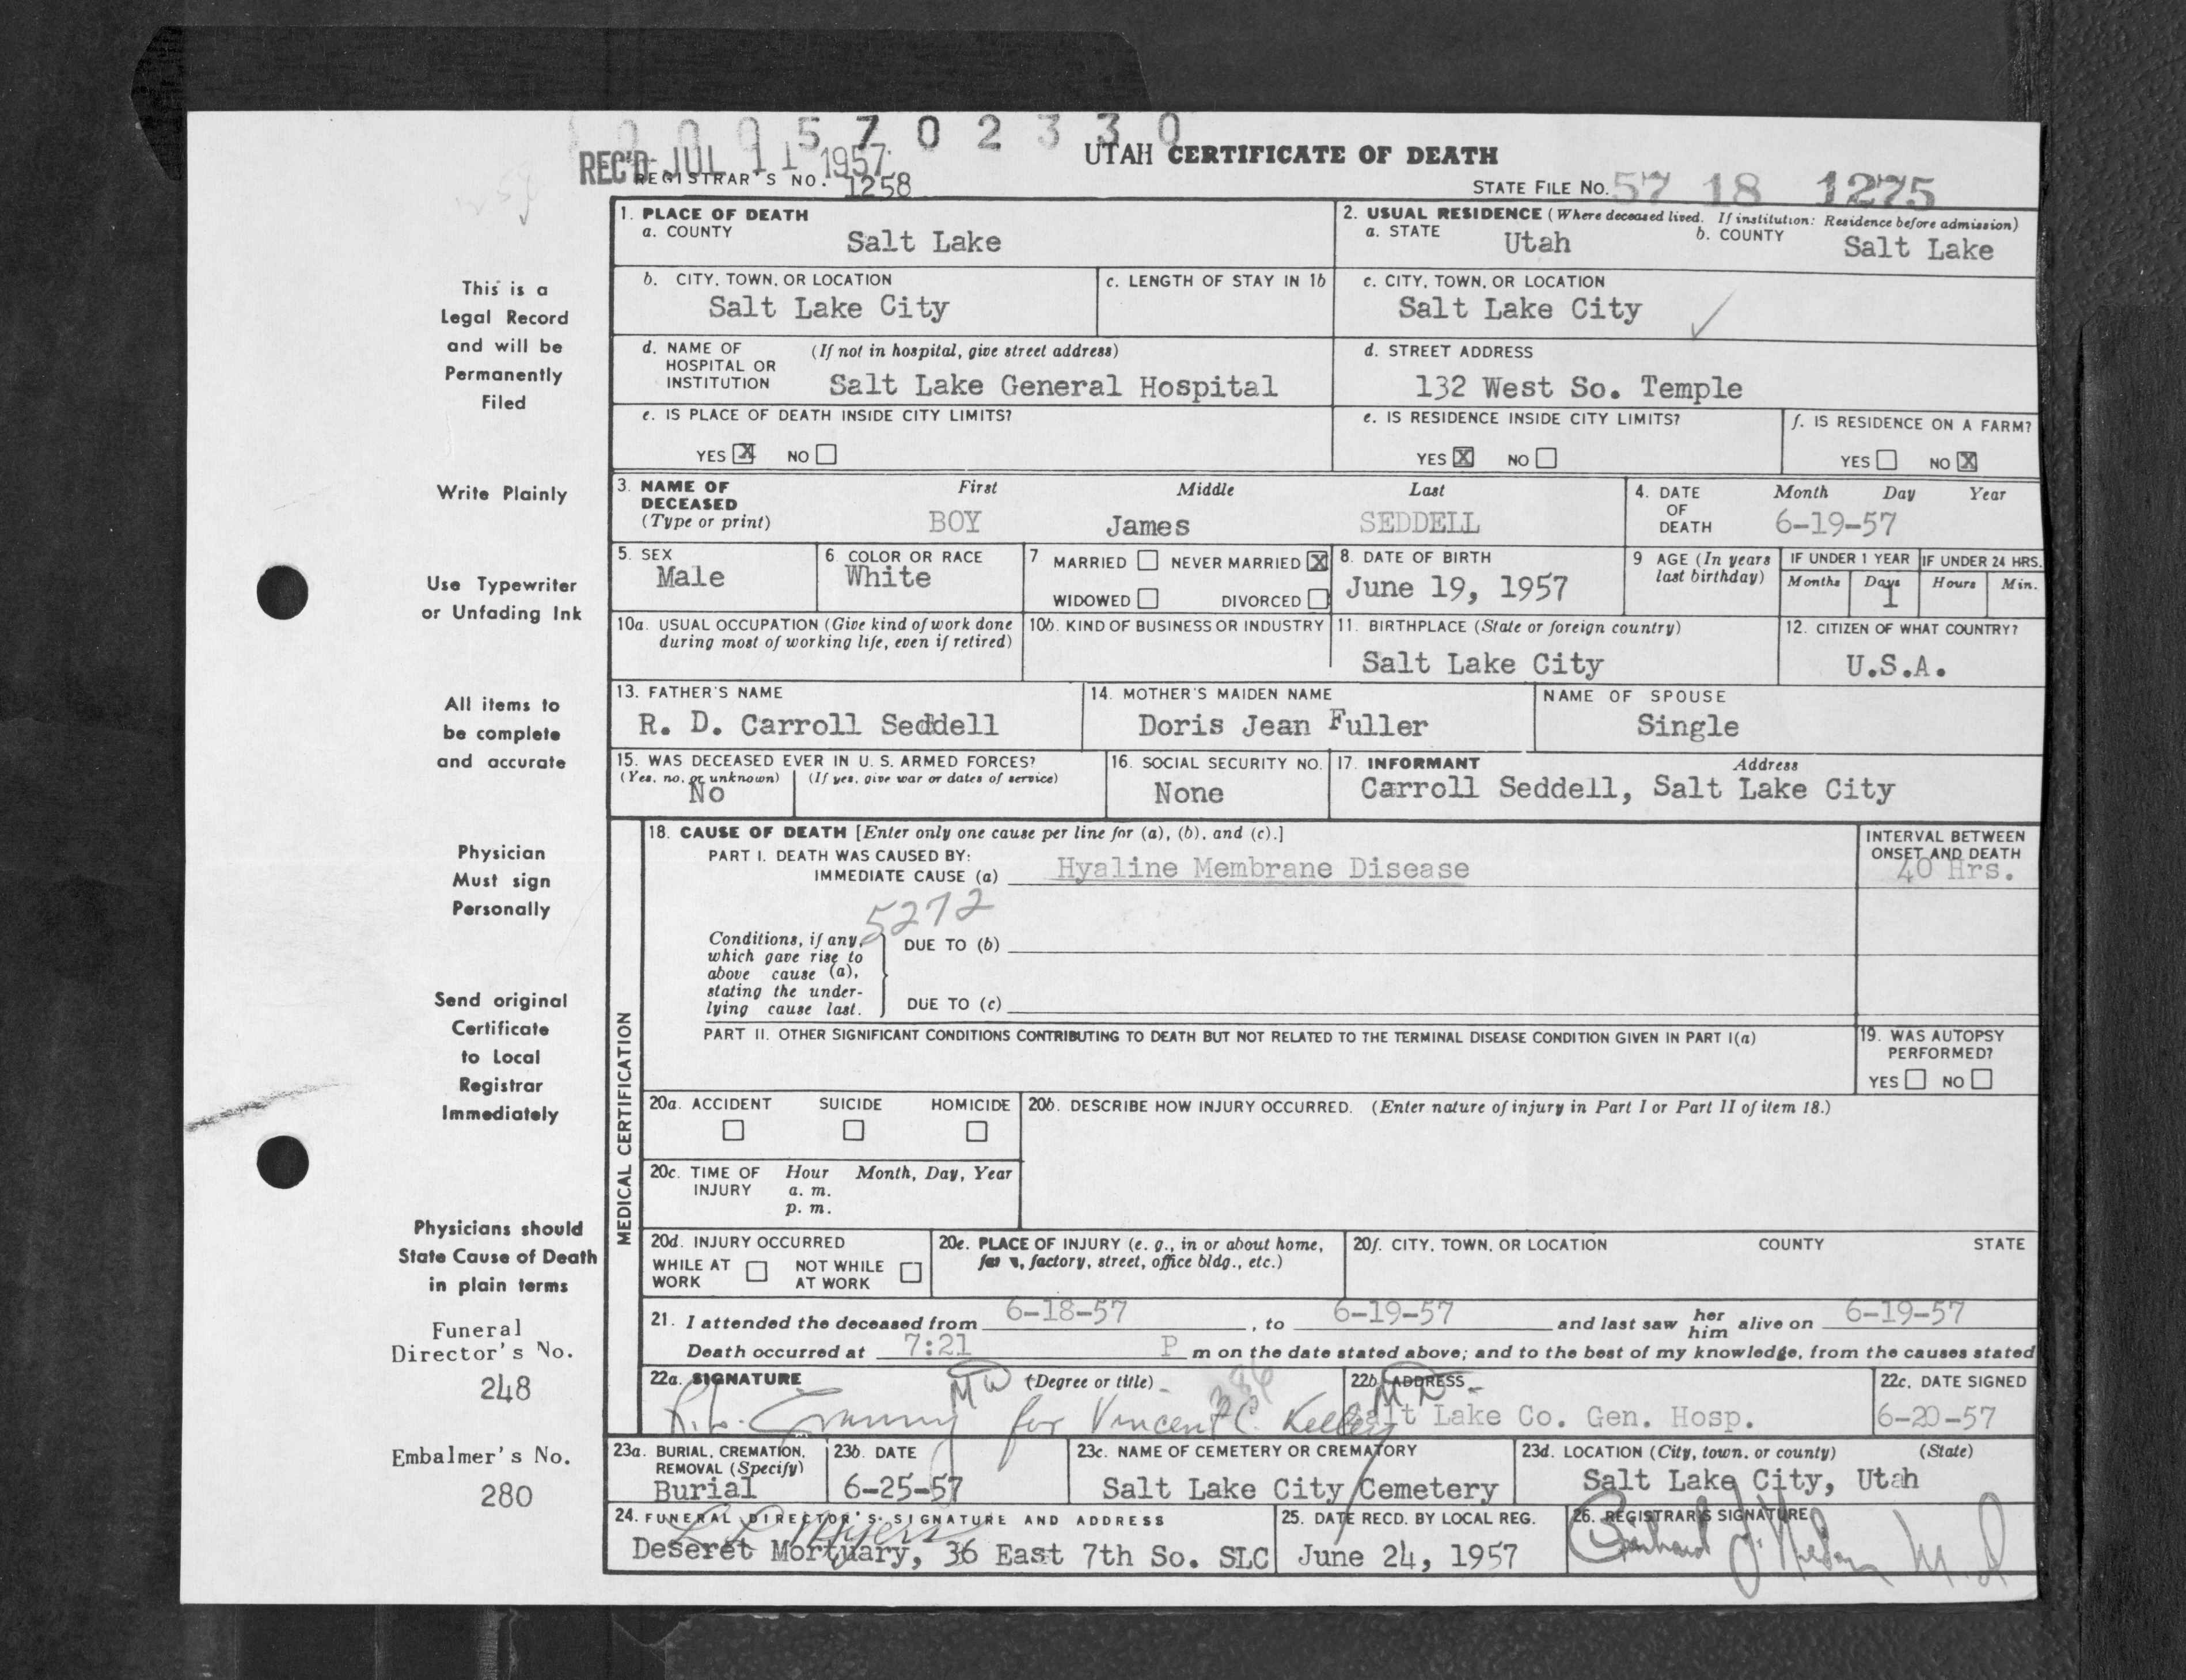 0 0 0 5 7 0 2 3 3 0
REC'D JUL 11 1957
UTAH CERTIFICATE OF DEATH
REGISTRAR'S NO. 1258
STATE FILE NO. 57 18 1275
1. PLACE OF DEATH
a. COUNTY
Salt Lake
2. USUAL RESIDENCE (Where deceased lived. If institution: Residence before admission)
a. STATE Utah b. COUNTY Salt Lake
b. CITY, TOWN, OR LOCATION
Salt Lake City
c. LENGTH OF STAY IN 1b
c. CITY, TOWN, OR LOCATION
Salt Lake City
d. NAME OF HOSPITAL OR INSTITUTION (If not in hospital, give street address)
Salt Lake General Hospital
d. STREET ADDRESS
132 West So. Temple
e. IS PLACE OF DEATH INSIDE CITY LIMITS?
YES X NO
e. IS RESIDENCE INSIDE CITY LIMITS?
YES X NO
f. IS RESIDENCE ON A FARM?
YES NO X
3. NAME OF DECEASED (Type or print)
First Middle Last
BOY James SEDDELL
4. DATE OF DEATH Month Day Year
6-19-57
5. SEX
Male
6. COLOR OR RACE
White
7 MARRIED NEVER MARRIED X
WIDOWED DIVORCED
8. DATE OF BIRTH
June 19, 1957
9 AGE (In years last birthday)
IF UNDER 1 YEAR IF UNDER 24 HRS.
Months Days Hours Min.
1
10a. USUAL OCCUPATION (Give kind of work done during most of working life, even if retired)
10b. KIND OF BUSINESS OR INDUSTRY
11. BIRTHPLACE (State or foreign country)
Salt Lake City
12. CITIZEN OF WHAT COUNTRY?
U.S.A.
13. FATHER'S NAME
R. D. Carroll Seddell
14. MOTHER'S MAIDEN NAME
Doris Jean Fuller
NAME OF SPOUSE
Single
15. WAS DECEASED EVER IN U. S. ARMED FORCES?
(Yes, no, or unknown) (If yes, give war or dates of service)
No
16. SOCIAL SECURITY NO.
None
17. INFORMANT Address
Carroll Seddell, Salt Lake City
MEDICAL CERTIFICATION
18. CAUSE OF DEATH [Enter only one cause per line for (a), (b), and (c).]
PART I. DEATH WAS CAUSED BY:
IMMEDIATE CAUSE (a) Hyaline Membrane Disease
INTERVAL BETWEEN ONSET AND DEATH
40 Hrs.
5272
Conditions, if any, which gave rise to above cause (a), stating the underlying cause last.
DUE TO (b)
DUE TO (c)
PART II. OTHER SIGNIFICANT CONDITIONS CONTRIBUTING TO DEATH BUT NOT RELATED TO THE TERMINAL DISEASE CONDITION GIVEN IN PART I(a)
19. WAS AUTOPSY PERFORMED?
YES NO
20a. ACCIDENT SUICIDE HOMICIDE
20b. DESCRIBE HOW INJURY OCCURRED. (Enter nature of injury in Part I or Part II of item 18.)
20c. TIME OF INJURY Hour Month, Day, Year
a. m.
p. m.
20d. INJURY OCCURRED
WHILE AT WORK NOT WHILE AT WORK
20e. PLACE OF INJURY (e. g., in or about home, farm, factory, street, office bldg., etc.)
20f. CITY, TOWN, OR LOCATION COUNTY STATE
21. I attended the deceased from 6-18-57, to 6-19-57 and last saw her him alive on 6-19-57
Death occurred at 7:21 P m on the date stated above; and to the best of my knowledge, from the causes stated
22a. SIGNATURE (Degree or title)
for Vincent C. Kelley MD
22b. ADDRESS
Salt Lake Co. Gen. Hosp.
22c. DATE SIGNED
6-20-57
23a. BURIAL, CREMATION, REMOVAL (Specify)
Burial
23b. DATE
6-25-57
23c. NAME OF CEMETERY OR CREMATORY
Salt Lake City Cemetery
23d. LOCATION (City, town, or county) (State)
Salt Lake City, Utah
24. FUNERAL DIRECTOR'S SIGNATURE AND ADDRESS
Myers
Deseret Mortuary, 36 East 7th So. SLC
25. DATE RECD. BY LOCAL REG.
June 24, 1957
26. REGISTRAR'S SIGNATURE
This is a
Legal Record
and will be
Permanently
Filed
Write Plainly
Use Typewriter
or Unfading Ink
All items to
be complete
and accurate
Physician
Must sign
Personally
Send original
Certificate
to Local
Registrar
Immediately
Physicians should
State Cause of Death
in plain terms
Funeral
Director's No.
248
Embalmer's No.
280